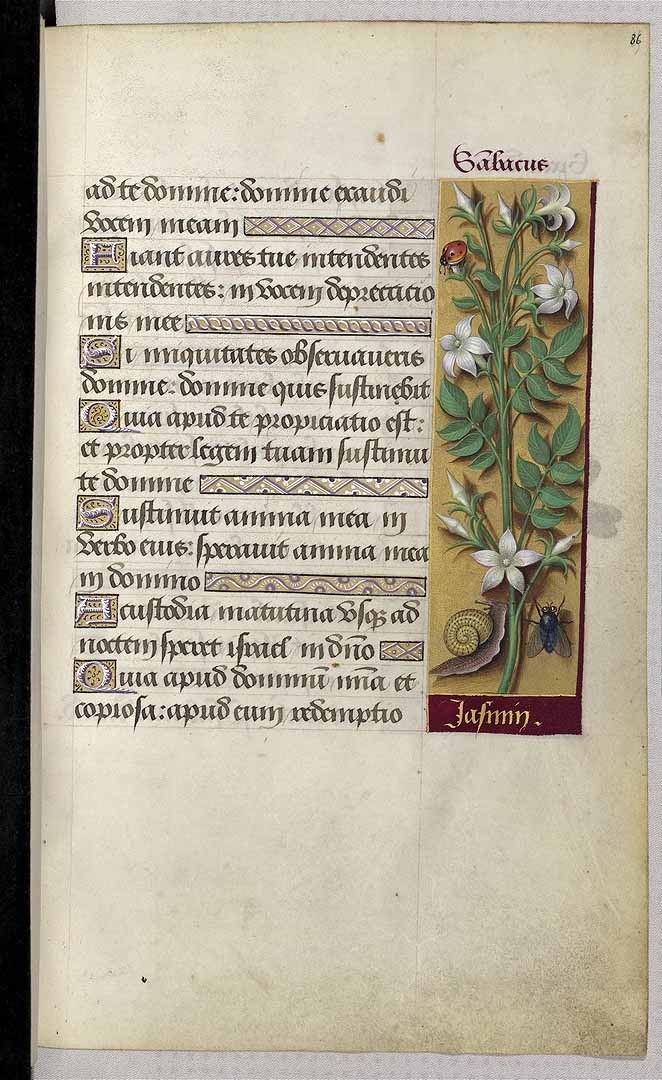 86
Sābacus
ad te domine: domine exaudi
vocem meam
Fiant aures tue intendentes
intendentes: in vocem deprecatio
nis mee
Si iniquitates observaueris
domine: domine quis sustinebit
Quia apud te propiciatio est:
et propter legem tuam sustinui
te domine
Sustinuit anima mea in
verbo eius: speravit anima mea
in domino
A custodia matutina usq3 ad
noctem speret israel in dño
Quia apud dominū mīa et
copiosa: apud eum redemptio
Jasmin.